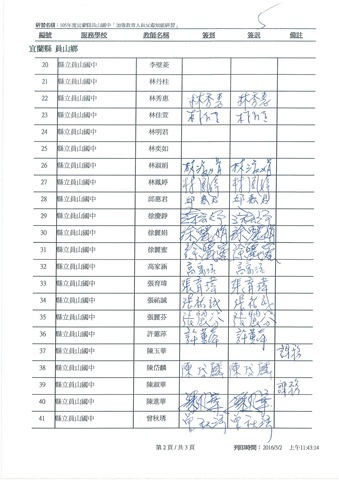 5
研習名稱：105年度宜蘭縣員山國中「加強教育人員反毒知能研習」
編號 服務學校 教師名稱 簽到 簽說 備註
宜蘭縣 員山鄉
20 縣立員山國中 李璧菱
21 縣立員山國中 林丹桂
22 縣立員山國中 林秀惠 林秀惠 林秀惠
23 縣立員山國中 林佳萱
24 縣立員山國中 林明君
25 縣立員山國中 林奕如
26 縣立員山國中 林淑娟 林淑娟 林淑娟
27 縣立員山國中 林鳳婷 林鳳婷 林鳳婷
28 縣立員山國中 邱惠君 邱惠君 邱惠君
29 縣立員山國中 徐慶錚
30 縣立員山國中 徐麗娟 徐麗娟 徐麗娟
31 縣立員山國中 徐麗蜜 徐麗蜜 徐麗蜜
32 縣立員山國中 高家涵 高家涵 高家涵
33 縣立員山國中 張育瑋 張育瑋 張育瑋
34 縣立員山國中 張祐誠 張祐誠 張祐誠
35 縣立員山國中 張麗芬
36 縣立員山國中 許蕙萍 許蕙萍 許蕙萍
37 縣立員山國中 陳玉華 課務
38 縣立員山國中 陳岱麟 陳岱麟 陳岱麟
39 縣立員山國中 陳淑華 課務
40 縣立員山國中 陳進華
41 縣立員山國中 曾秋琇 曾秋琇 曾秋琇
第 2 頁 / 共 3 頁 列印時間：2016/3/2 上午11:43:14